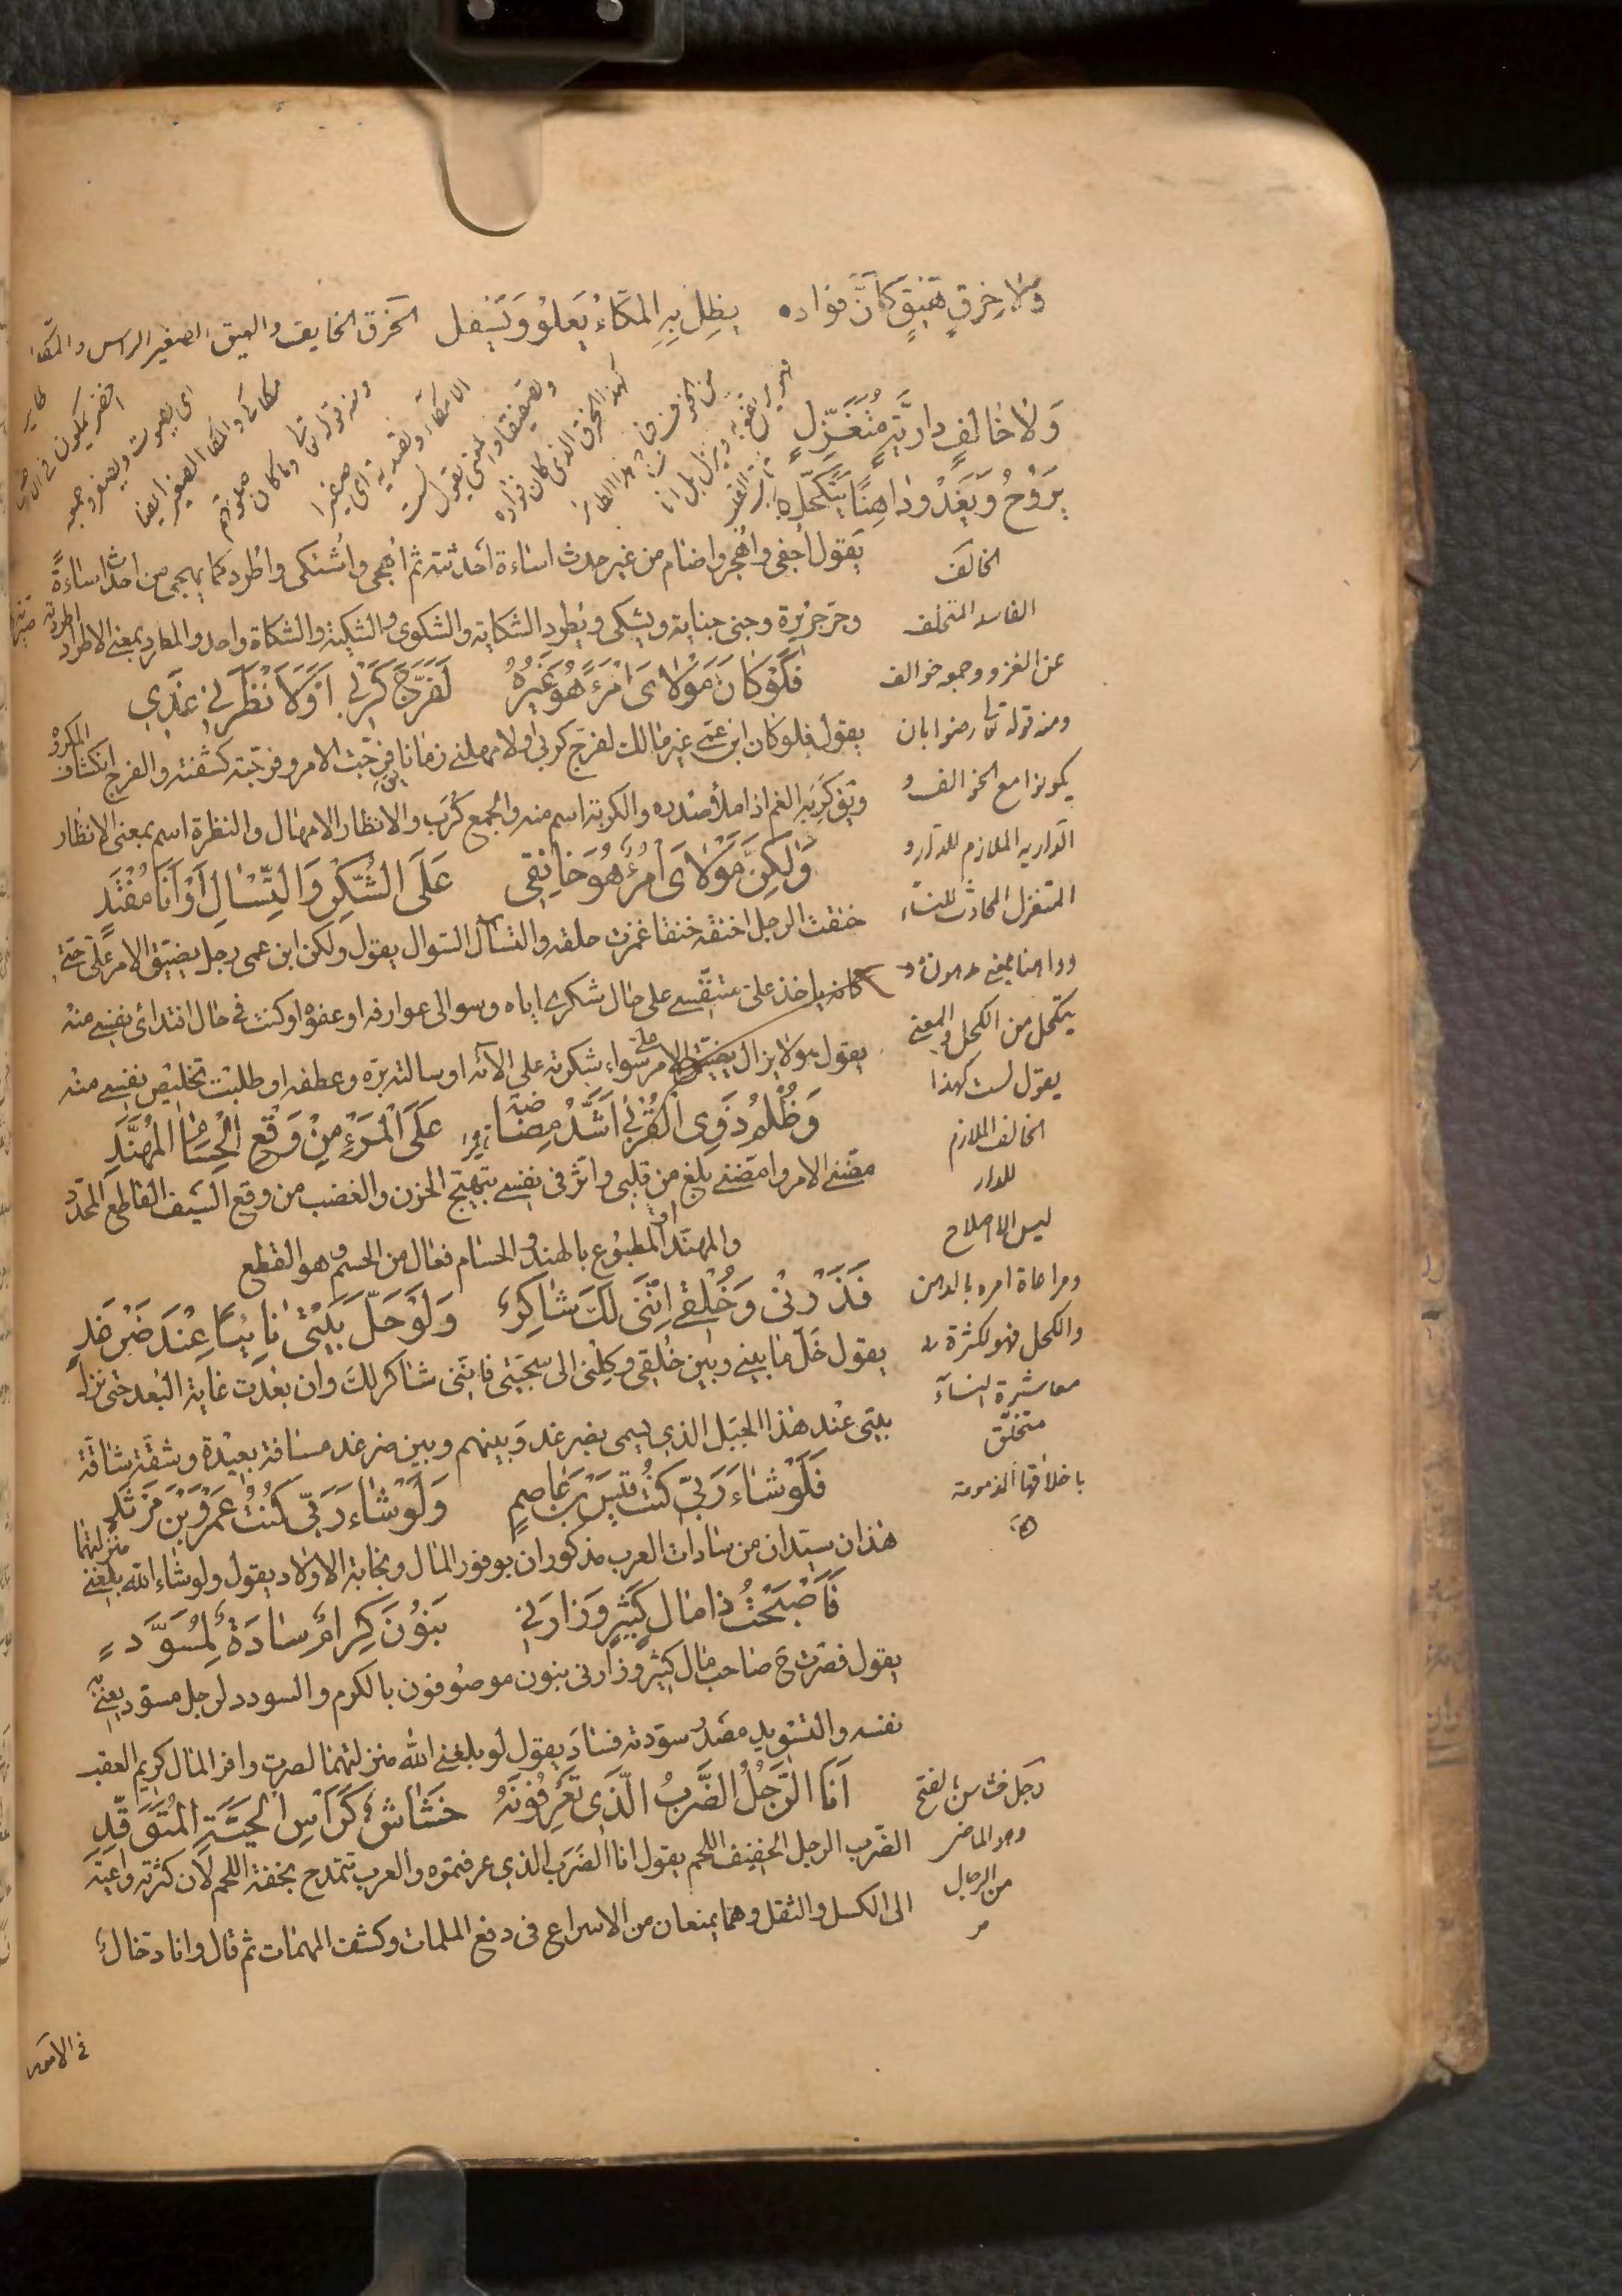 ولا خرق هيق كأن فؤاده يظل به المكاء يعلو ويسفل الخرق الخايف والهيق الصغير الراس والمكا
طاير
اخضر يكون في
اى يصوت ويصفر وجمعه
مكاكى والمكا الصغير ايضا
ومنه قوله تعالى وما كان صلوتهم
الا مكاء وتصدية اى صفيرا
وتصفيقا والمعنى يقول لست
كهذا الخرق الذى كان فؤاده
من الخوف هذا الطائر
ولا خالف دارية متغزل
يروح ويغدو داهنا يتكحل
يقول اجفى واهجر واضام من غير حدث اساءة أحدثته ثم اهجى واشتكى واطرد كما يهجى من احدث اساءة
وجر جريرة وجنى جناية ويشكى ويطرد الشكاية والشكوى والشكية والشكاة واحد والمطرد بمعنى الاطراد
اطردته صيرته
فلو كان مولاى امرءا هو غيره لفرج كربى او لانظرنى غدى
يقول فلو كان ابن عمى غير مالك لفرج كربى ولا مهلنى زمانا فرجت الامر وفرجته كشفته والفرج انكشاف المكروه
كربه الغم اذا ملأ صدره والكربة اسم منه والجمع كرب والانظار الامهال والنظرة اسم بمعنى الانظار
ولكن مولاى امرؤ هو خانقى على الشكر والتسال او انا مفتد
خنقت الرجل اخنقه خنقا غمزت حلقه والتسأل السوال يقول ولكن ابن عمى رجل يضيق الامر على حتى
كانه ياخذ على متنفسى على حال شكرى اياه وسوالى عوارفه او عفوه او كنت في حال افتدائى نفسى منه
يقول هو لا يزال يضيق الامر على سواء شكرته على الآئه او سالته بره وعطفه او طلبت تخليص نفسى منه
وظلم ذوى القربى اشد مضاضة على المرء من وقع الحسام المهند
مضنى الامر وامضنى بلغ من قلبى واثر فى نفسى تهييج الحزن والغضب من وقع السيف القاطع المحدد
او المطبوع بالهند والحسام فعال من الحسم وهو القطع
فذرنى وخلقى اننى لك شاكر ولو حل بيتى نائيا عند ضرغد
يقول خل ما بينى وبين خلقى وكلنى الى سجيتى فاننى شاكر لك وان بعدت غاية البعد حتى نزل
بيتى عند هذا الجبل الذي يسمى بضرغد وبينهم وبين ضرغد مسافة بعيدة وشقة شاقة
فلو شاء ربى كنت قيس بن عاصم ولو شاء ربى كنت عمرو بن مرثد
هذان سيدان من سادات العرب مذكوران بوفور المال ونجابة الاولاد يقول ولو شاء الله بلغنى منزلتهما
فاصبحت ذا مال كثير وزارنى بنون كرام سادة لمسود
يقول فصرت ح صاحب مال كثير وزارنى بنون موصوفون بالكرم والسودد لرجل مسود يعنى به
نفسه والتسويد مصدر سودته فساد يقول لو بلغنى الله منزلتهما لصرت وافر المال كريم العقب
انا الرجل الضرب الذى تعرفونه خشاش كرأس الحية المتوقد
الضرب الرجل الخفيف اللحم يقول انا الضرب الذي عرفتموه والعرب تتمدح بخفة اللحم لان كثرته داعية
الى الكسل والثقل وهما يمنعان من الاسراع فى دفع الملمات وكشف المهمات ثم قال وانا دخال
الخالف
الفاسد المتخلف
عن الغزو وجمعه خوالف
ومنه قوله تعالى رضوا بان
يكونوا مع الخوالف و
الدارية الملازم للدار و
المتغزل المحادث للنساء
يتكحل من الكحل والمعنى
يقول لست كهذا
الخالف الملازم
للدار
ليس الاصلاح
ومراعاة امره بالدهن
والكحل فهو لكثرة
معاشرة النساء
متخلق
باخلاقها المذمومة
رجل خشاش بالفتح
وهو الماضى
من الرجال
فى الامور